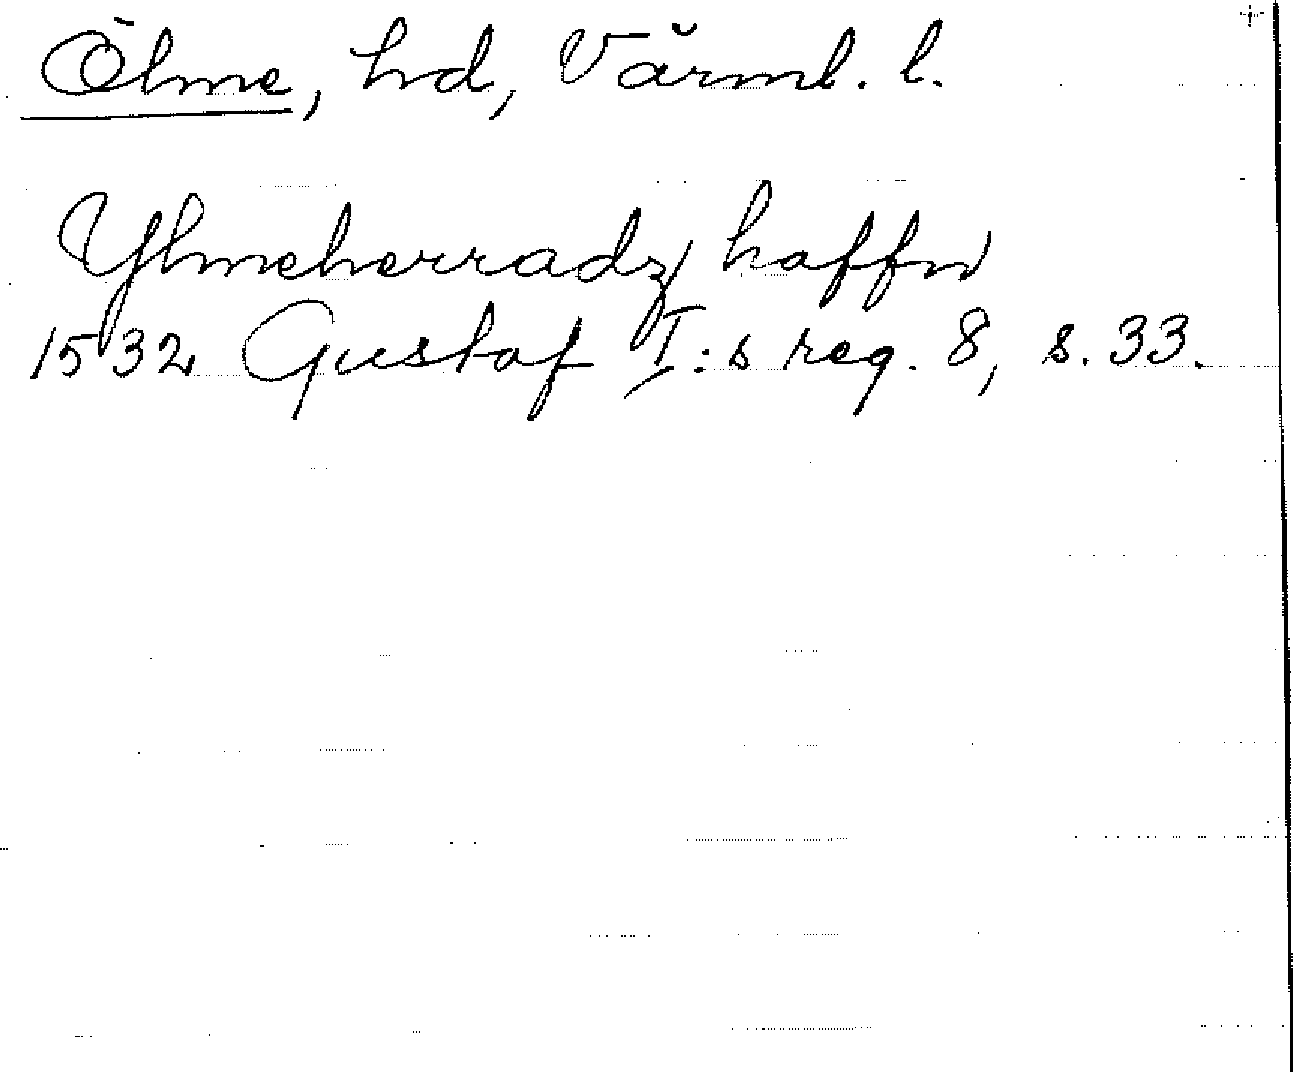 Ölme, hd, Värml. l.
Ylmeherradz haffn
1532 Gustaf I:s reg. 8, s. 33.